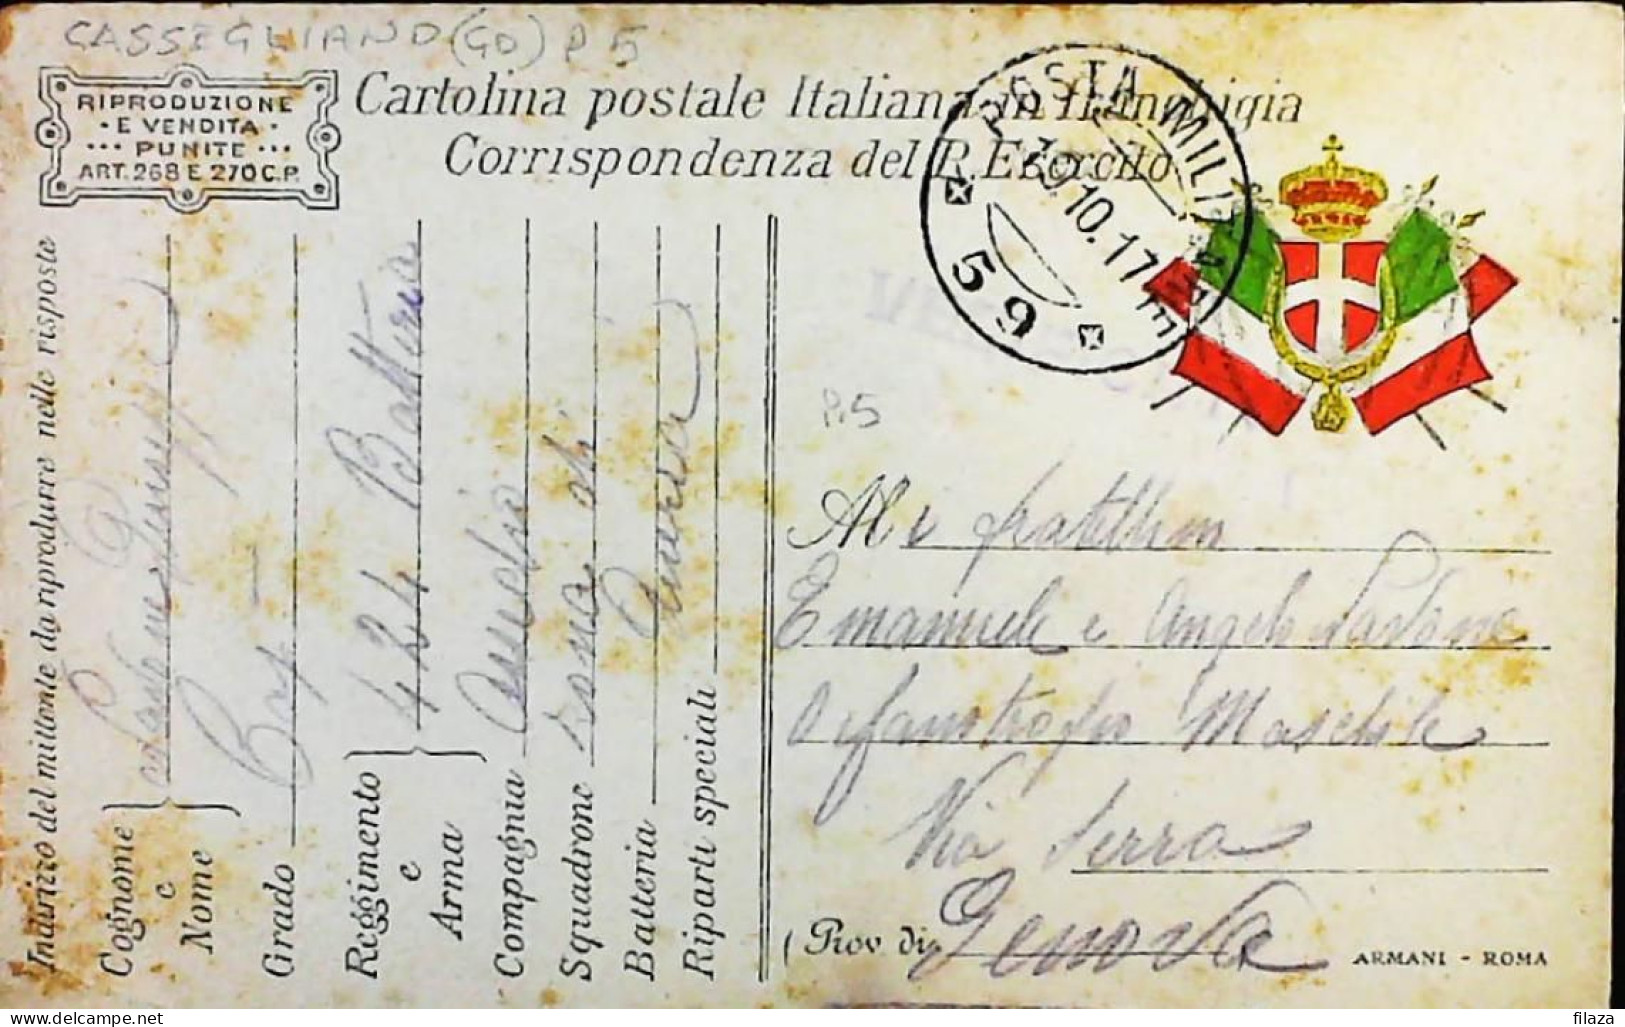 CASSEGLIANO (GO) P 5
RIPRODUZIONE
E VENDITA
PUNITE
ART. 268 E 270 C.P.
Cartolina postale Italiana in franchigia
Corrispondenza del R. Esercito
POSTA MILITARE
10.17
59
P.5
Indirizzo del mittente da riprodurre nelle risposte
Cognome
e
Nome
Grado
Reggimento
e
Arma
424 Batteria
Compagnia
Squadrone
Batteria
Riparti speciali
Al i fratellini
Emanuele e Angelo Pavone
Maschile
Via Serra
Prov di Genova
ARMANI - ROMA
filaza